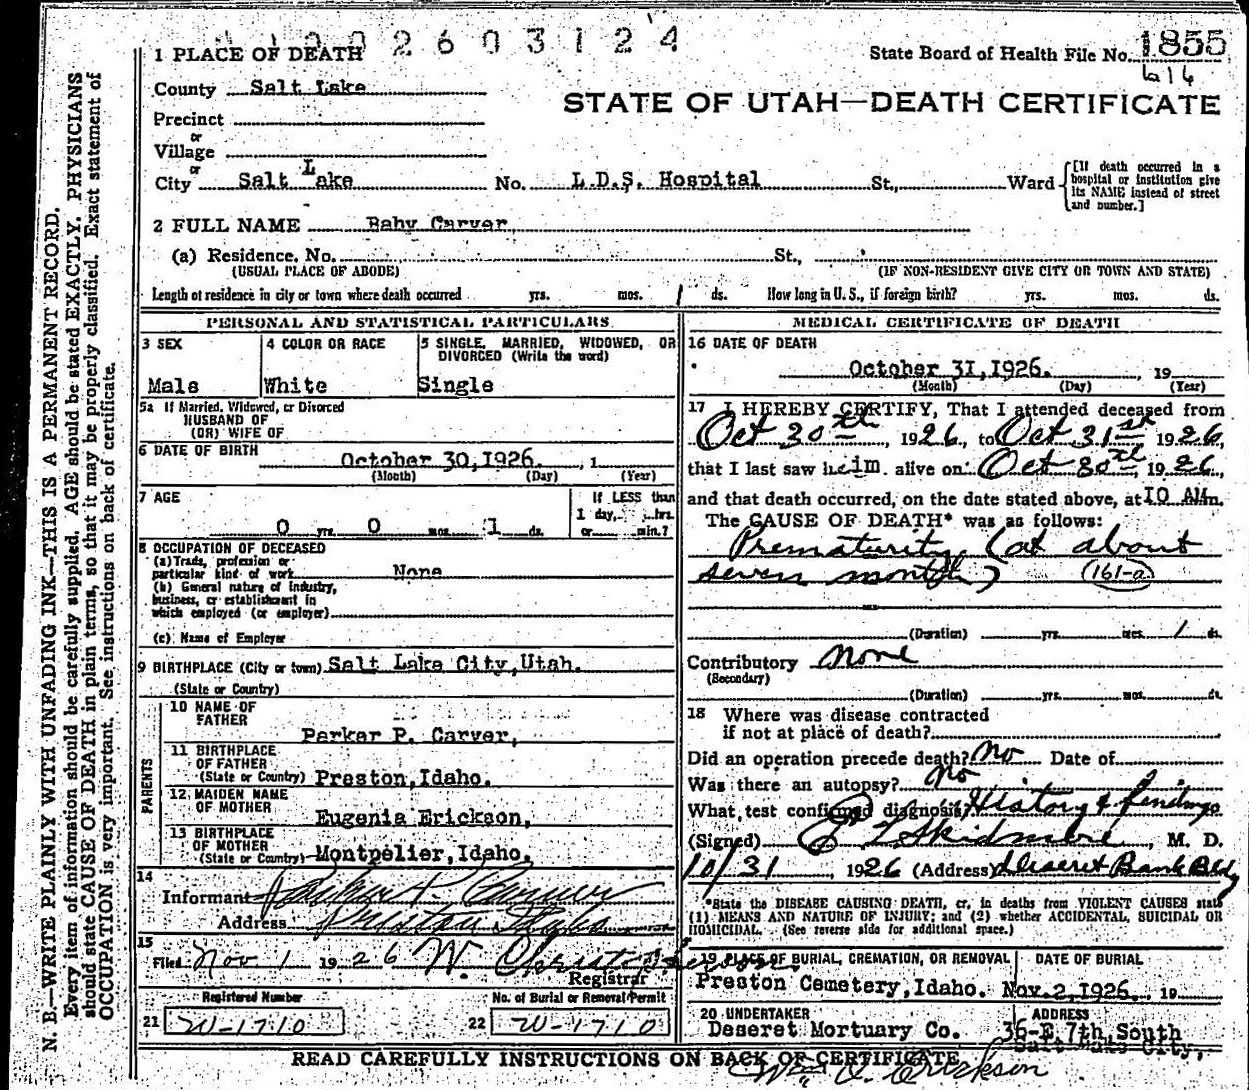 2 6 0 3 1 2 4
1 PLACE OF DEATH
State Board of Health File No. 1855
616
County Salt Lake
STATE OF UTAH—DEATH CERTIFICATE
Precinct
or
Village
or
City Salt Lake No. L.D.S. Hospital St., Ward
[If death occurred in a
hospital or institution give
its NAME instead of street
and number.]
2 FULL NAME Baby Carver,
(a) Residence. No. St.,
(USUAL PLACE OF ABODE) (IF NON-RESIDENT GIVE CITY OR TOWN AND STATE)
Length of residence in city or town where death occurred yrs. mos. 1 ds. How long in U. S., if foreign birth? yrs. mos. ds.
PERSONAL AND STATISTICAL PARTICULARS
3 SEX
Male
4 COLOR OR RACE
White
5 SINGLE, MARRIED, WIDOWED, OR
DIVORCED (Write the word)
Single
5a If Married, Widowed, or Divorced
HUSBAND OF
(OR) WIFE OF
6 DATE OF BIRTH
October 30,1926. , 1
(Month) (Day) (Year)
7 AGE
0 yrs. 0 mos. 1 ds.
If LESS than
1 day, hrs.
or min.?
8 OCCUPATION OF DECEASED
(a) Trade, profession or
particular kind of work None
(b) General nature of industry,
business, or establishment in
which employed (or employer)
(c) Name of Employer
9 BIRTHPLACE (City or town) Salt Lake City,Utah.
(State or Country)
PARENTS
10 NAME OF
FATHER
Parker P. Carver,
11 BIRTHPLACE
OF FATHER
(State or Country) Preston,Idaho.
12 MAIDEN NAME
OF MOTHER
Eugenia Erickson,
13 BIRTHPLACE
OF MOTHER
(State or Country) Montpelier,Idaho,
14
Informant Parker P. Carver
Address Preston Idaho
15
Filed Nov 1 1926 W. Christopherson
Registrar
Registered Number No. of Burial or Removal Permit
21 W-1710 22 W-1710
MEDICAL CERTIFICATE OF DEATH
16 DATE OF DEATH
October 31,1926. , 19
(Month) (Day) (Year)
17 I HEREBY CERTIFY, That I attended deceased from
Oct 30th, 1926, to Oct 31st 1926,
that I last saw heim. alive on Oct 30th, 1926,
and that death occurred, on the date stated above, at 10 AM.m.
The CAUSE OF DEATH* was as follows:
Prematurity (at about
seven months) (161-a)
(Duration) yrs. mos. 1 ds.
Contributory None
(Secondary)
(Duration) yrs. mos. ds.
18 Where was disease contracted
if not at place of death?
Did an operation precede death? No Date of
Was there an autopsy? No
What test confirmed diagnosis? History & findings
(Signed) Skidmore, M. D.
10/31, 1926 (Address) Deseret Bank Bldg
*State the DISEASE CAUSING DEATH, or, in deaths from VIOLENT CAUSES state
(1) MEANS AND NATURE OF INJURY; and (2) whether ACCIDENTAL, SUICIDAL OR
HOMICIDAL. (See reverse side for additional space.)
19 PLACE OF BURIAL, CREMATION, OR REMOVAL
Preston Cemetery,Idaho.
DATE OF BURIAL
Nov.2,1926. , 19
20 UNDERTAKER
Deseret Mortuary Co.
ADDRESS
36-E 7th South
Salt Lake City,
READ CAREFULLY INSTRUCTIONS ON BACK OF CERTIFICATE.
Wm O. Erickson
N. B.—WRITE PLAINLY WITH UNFADING INK—THIS IS A PERMANENT RECORD.
Every item of information should be carefully supplied. AGE should be stated EXACTLY. PHYSICIANS
should state CAUSE OF DEATH in plain terms, so that it may be properly classified. Exact statement of
OCCUPATION is very important. See instructions on back of certificate.